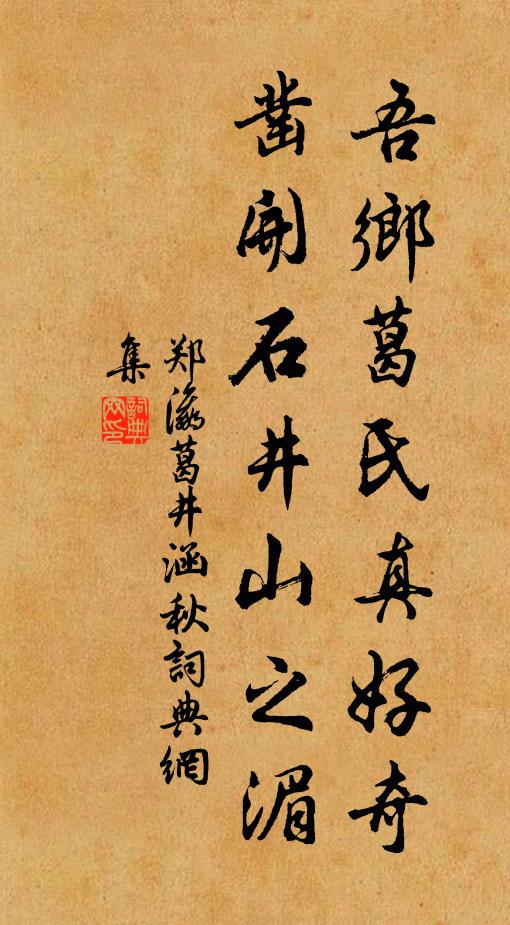 吾鄉葛氏真好奇
凿開石井山之湄
郑瀛葛井涵秋詞典網
集
詞典網印